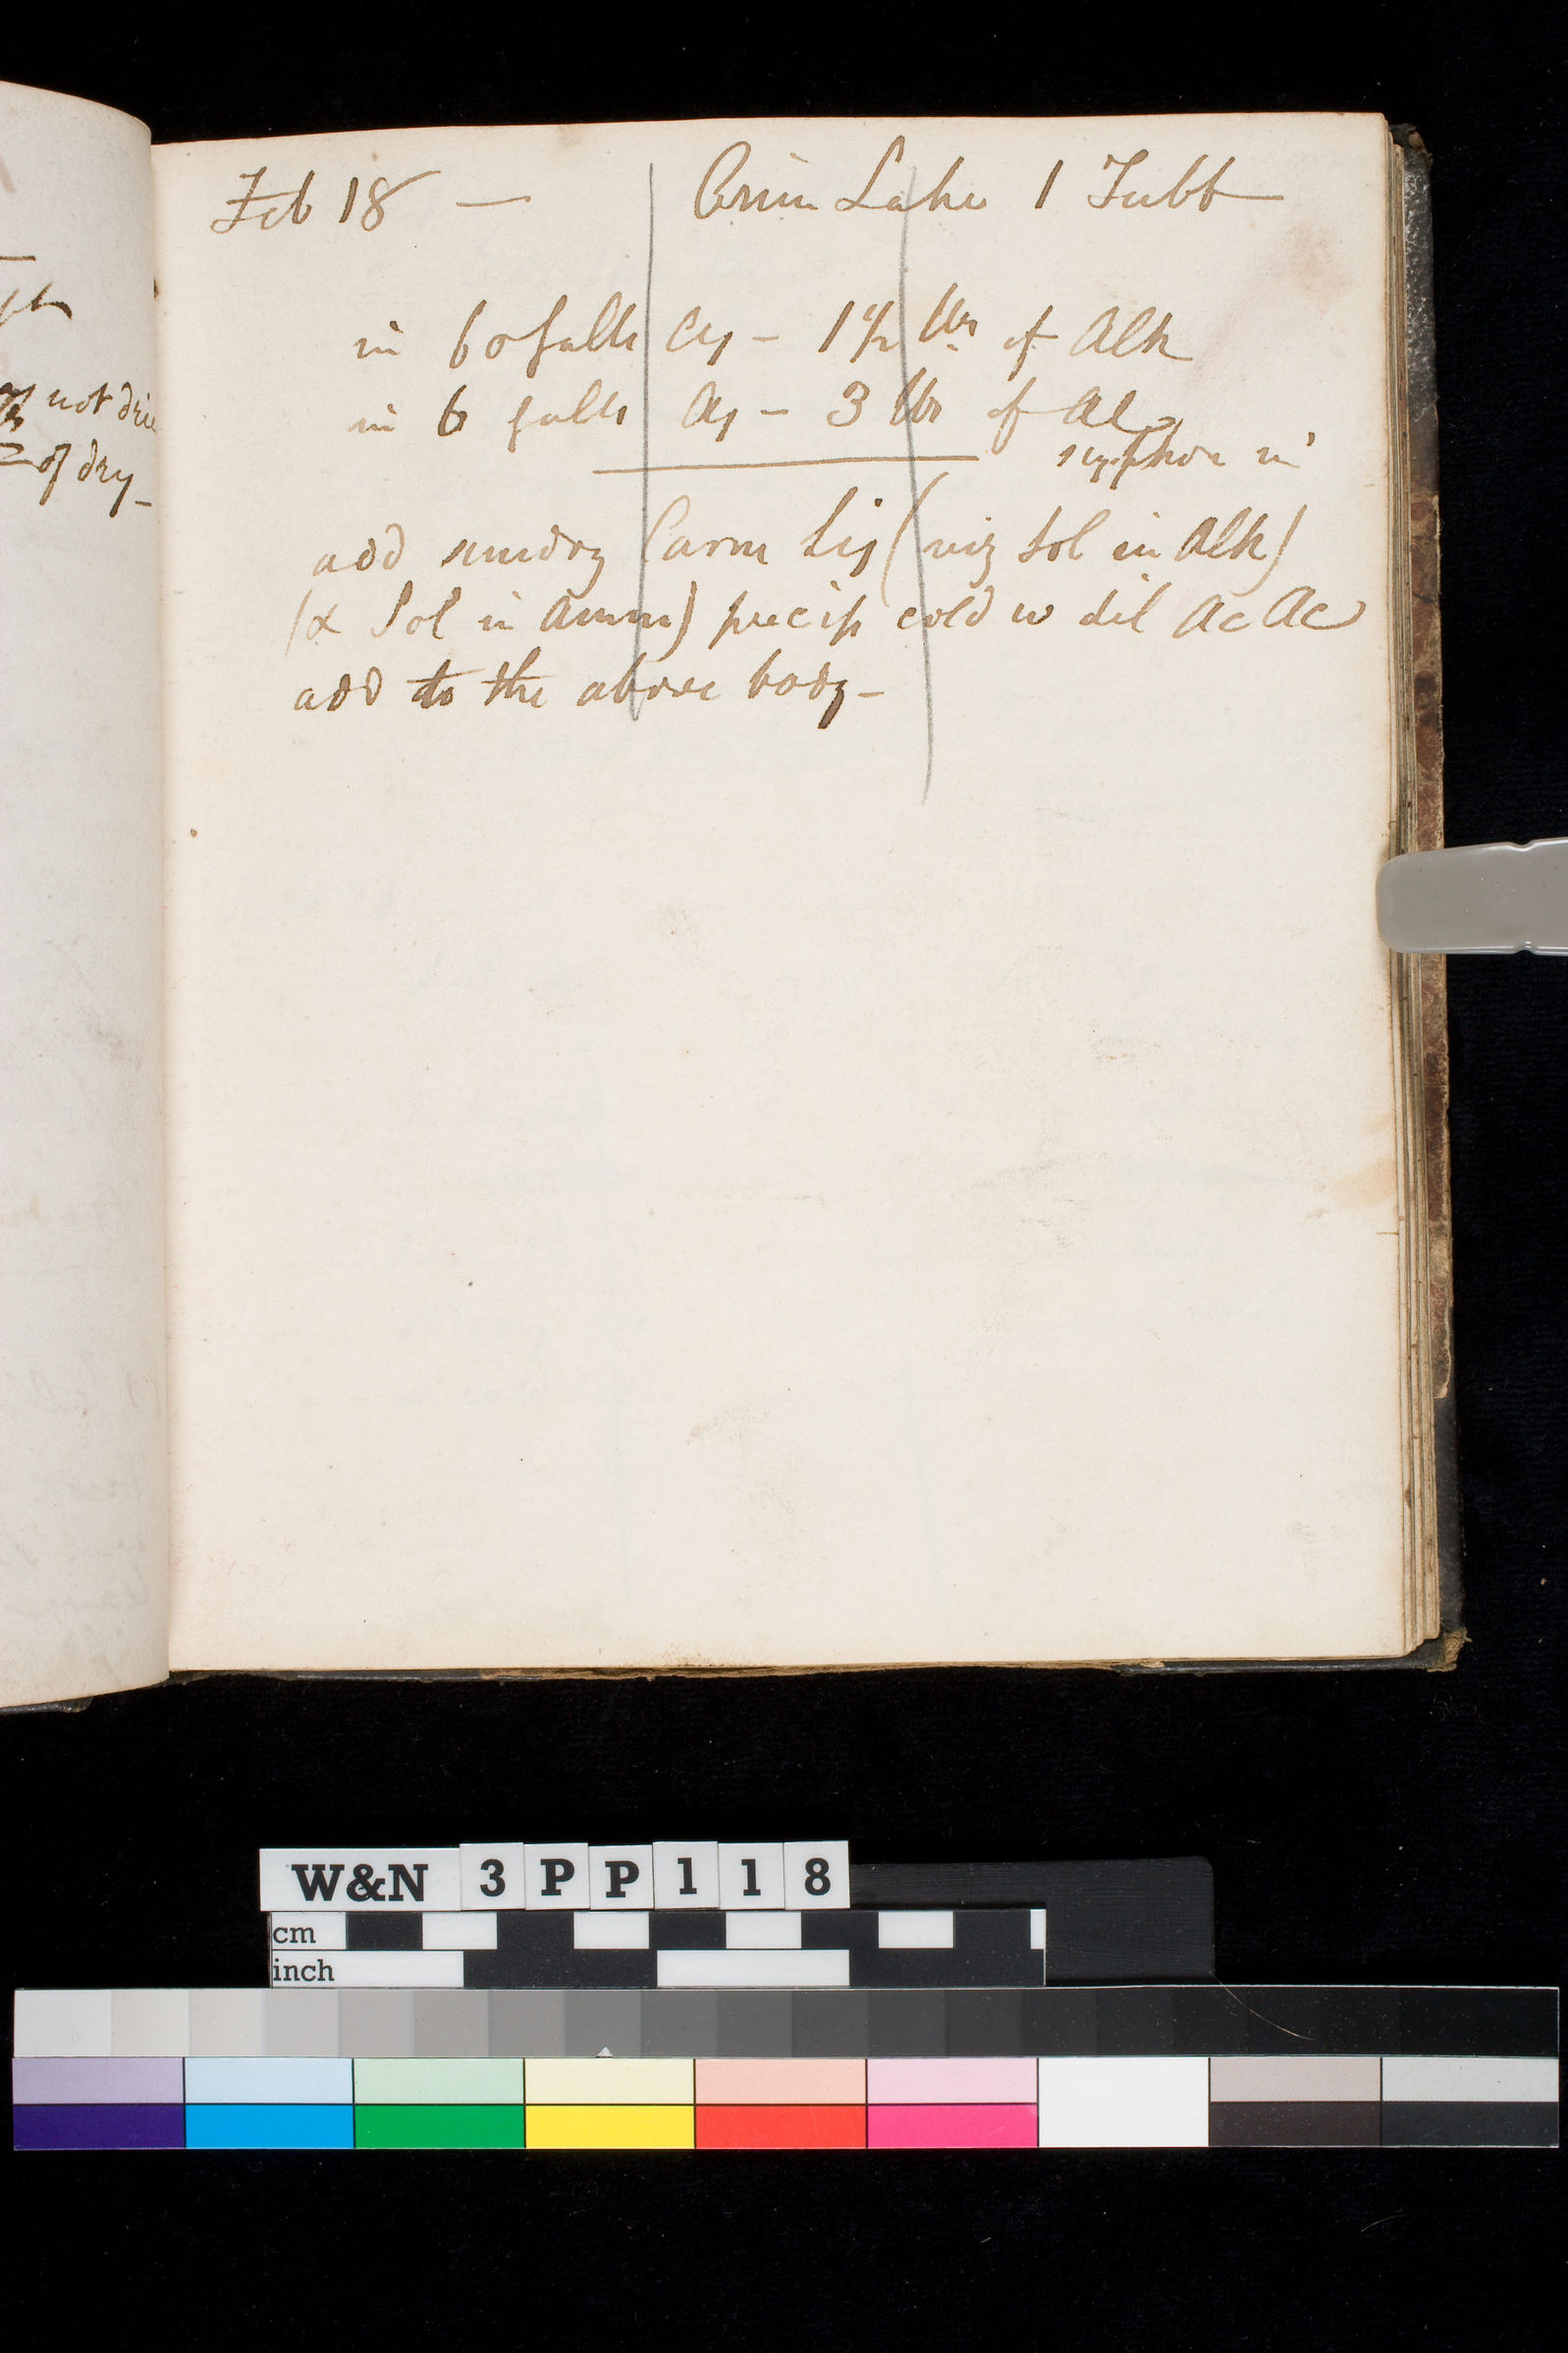 Feb 18 — Crim Lake 1 Tubb
in 60 galls Aq – 1 1/2 lbs of Alk
in 6 galls Aq – 3 lbs of Al
syphon in
add sundry Carm Liq (viz Sol in Alk)
(& Sol in Amm) precip cold w dil Ac Ac
add to the above body –
not drie
of dry –
W&N 3PP118
cm
inch